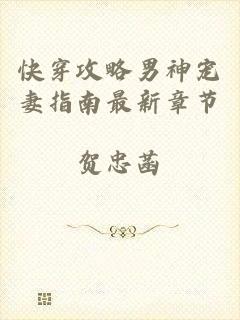 快穿攻略男神宠
妻指南最新章节
贺忠菡